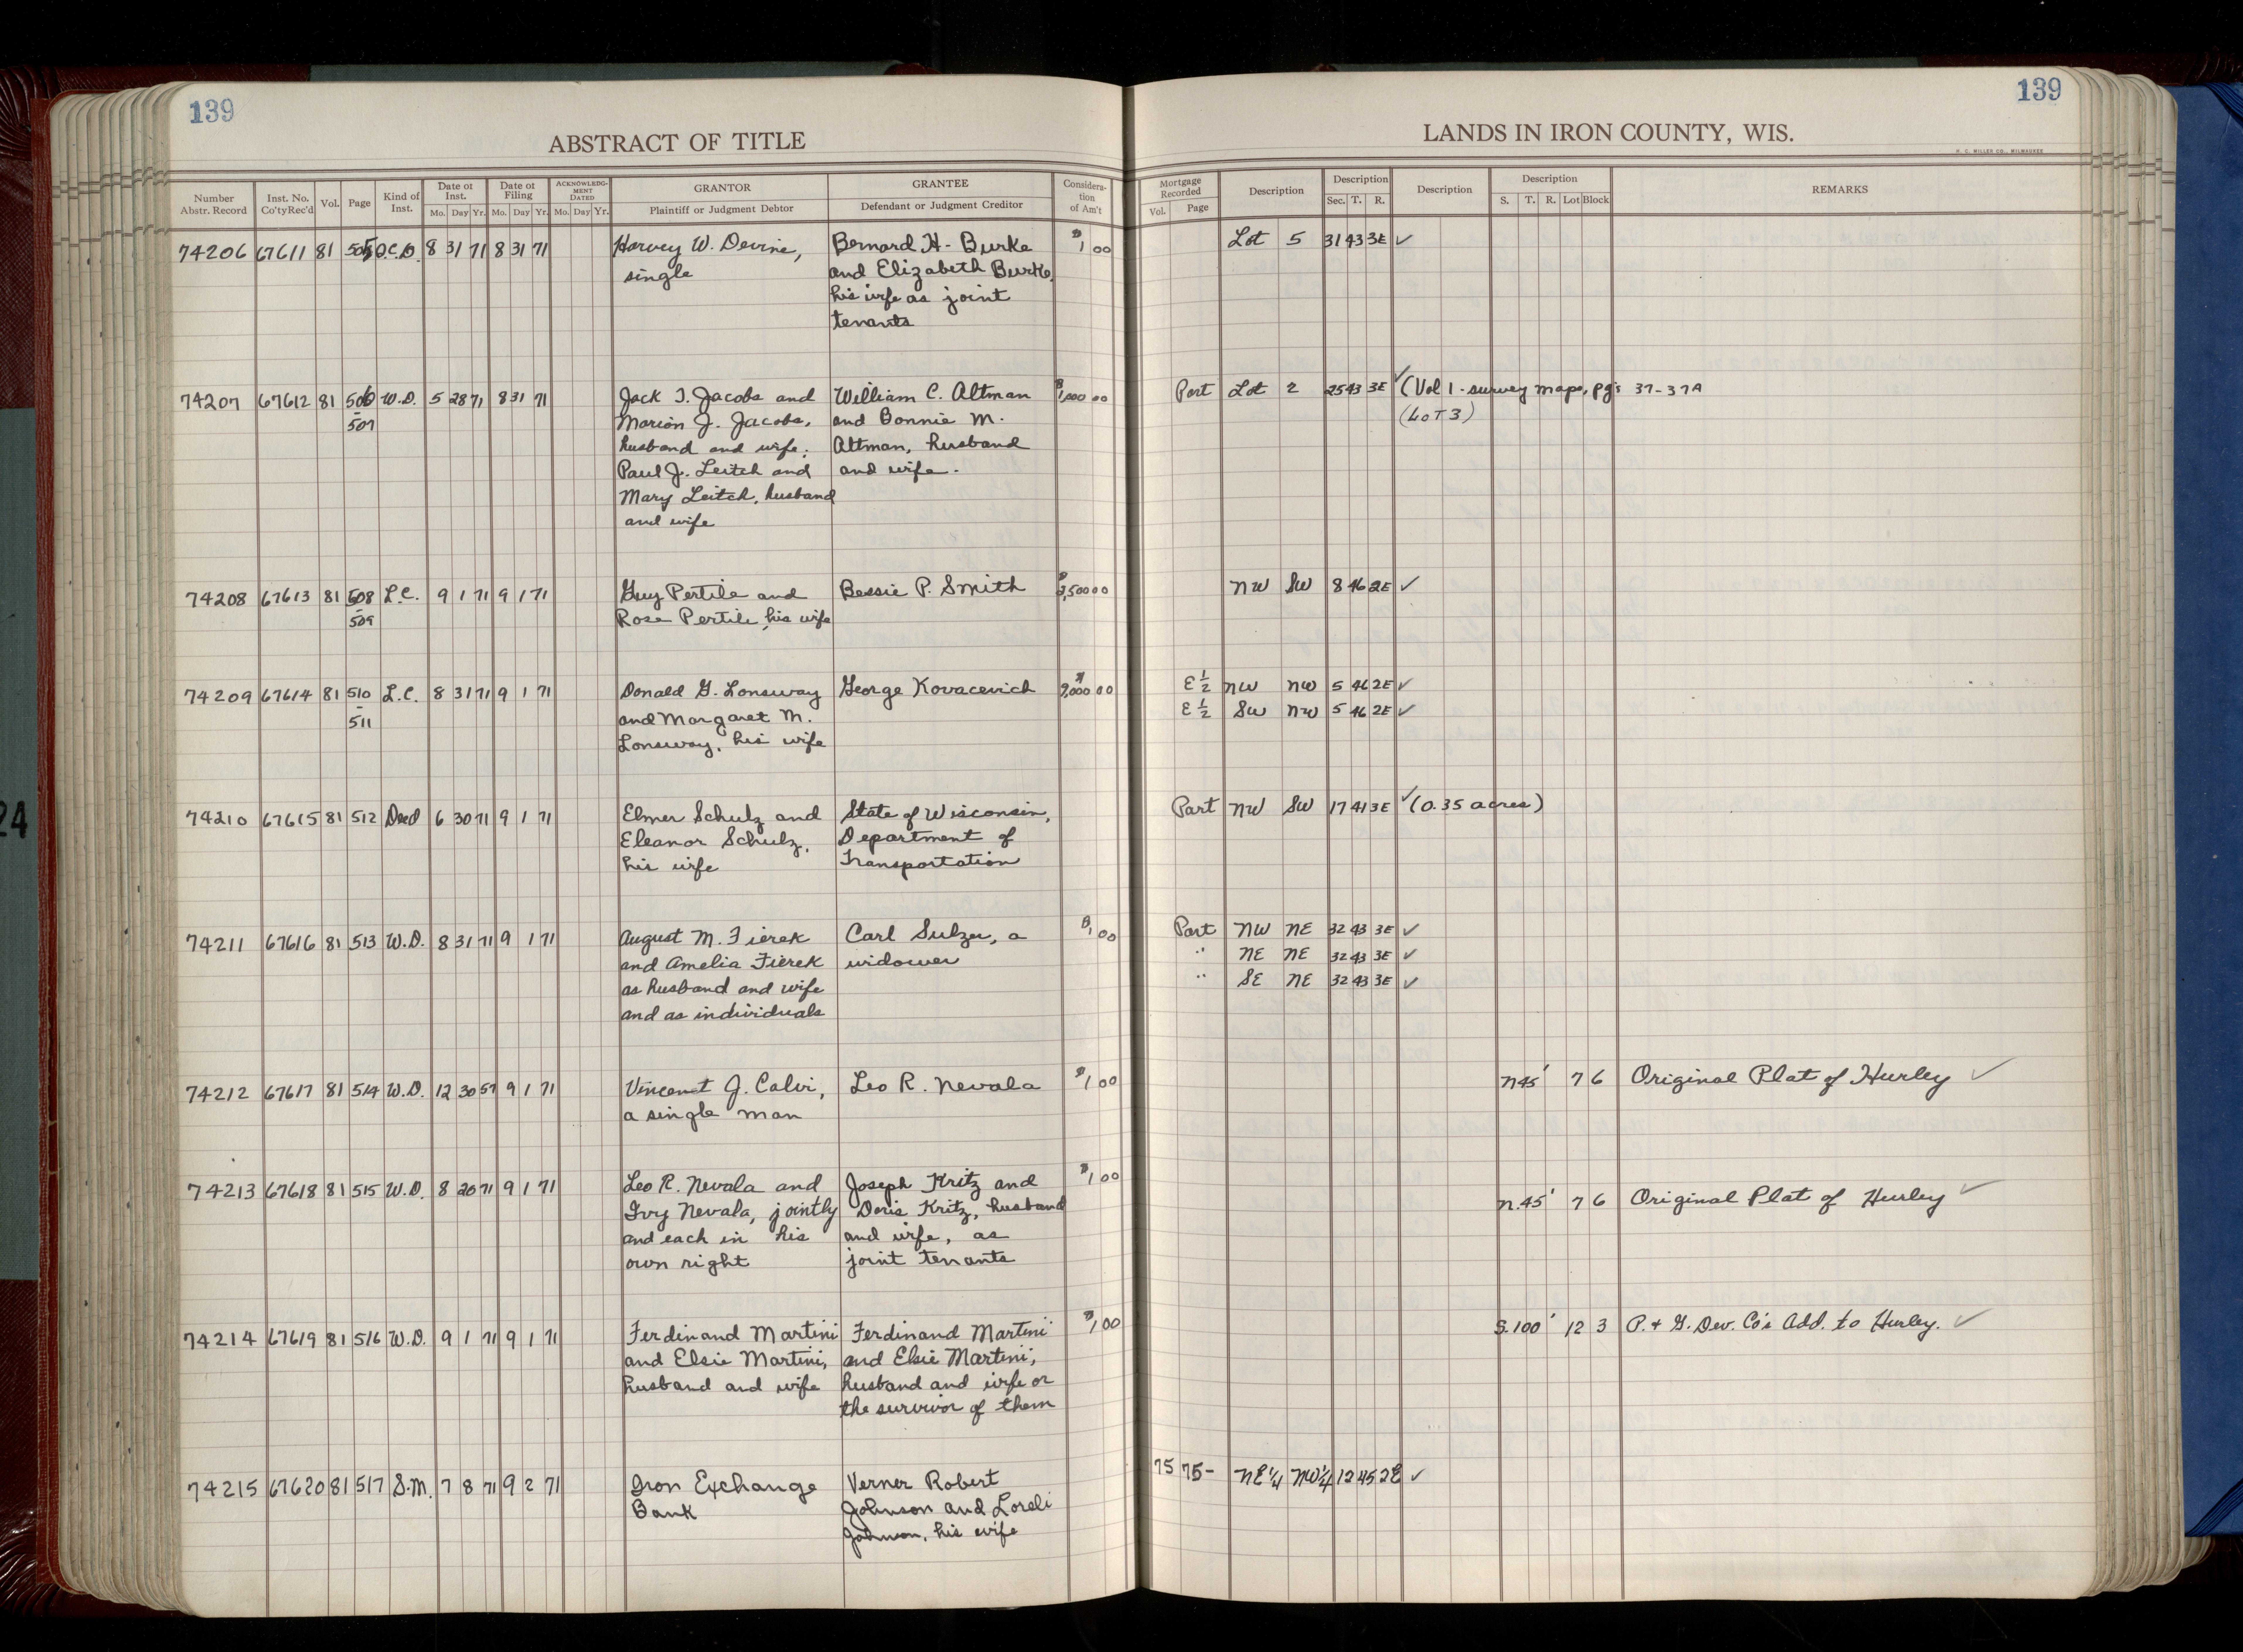 139
ABSTRACT OF TITLE
139
LANDS IN IRON COUNTY, WIS.
H. C. MILLER CO., MILWAUKEE
Number Abstr. Record
Inst. No. Co'ty Rec'd
Vol.
Page
Kind of Inst.
Date of Inst.
Mo. Day Yr.
Date of Filing
Mo. Day Yr.
ACKNOWLEDGMENT DATED
Mo. Day Yr.
GRANTOR
Plaintiff or Judgment Debtor
GRANTEE
Defendant or Judgment Creditor
Consideration of Am't
Mortgage Recorded
Vol. Page
Description
Description
Sec. T. R.
Description
Description
S. T. R. Lot Block
REMARKS
74206 67611 81 505 Q.C.D. 8 31 71 8 31 71 Harvey W. Devine, Bernard H. Burke $1 00 Lot 5 31 43 3E ✓
single and Elizabeth Burke,
his wife as joint
tenants
74207 67612 81 506 W.D. 5 28 71 8 31 71 Jack I. Jacobs and William C. Altman $1,000 00 Part Lot 2 25 43 3E ✓ (Vol 1 - survey maps, pg's 37-37A
- 507 Marion J. Jacobs, and Bonnie M. (LOT 3)
husband and wife; Altman, husband
Paul J. Leitch and and wife.
Mary Leitch, husband
and wife
74208 67613 81 508 L.C. 9 1 71 9 1 71 Guy Pertile and Bessie P. Smith $3,500 00 NW SW 8 46 2E ✓
- 509 Rose Pertile, his wife
74209 67614 81 510 L.C. 8 31 71 9 1 71 Donald G. Lonsway George Kovacevich $9,000 00 E 1/2 NW NW 5 46 2E ✓
- 511 and Margaret M. E 1/2 SW NW 5 46 2E ✓
Lonsway, his wife
74210 67615 81 512 Deed 6 30 71 9 1 71 Elmer Schulz and State of Wisconsin, Part NW SW 17 41 3E ✓ (0.35 acres)
Eleanor Schulz, Department of
his wife Transportation
74211 67616 81 513 W.D. 8 31 71 9 1 71 August M. Fierek Carl Sulzer, a $1 00 Part NW NE 32 43 3E ✓
and Amelia Fierek widower " NE NE 32 43 3E ✓
as husband and wife " SE NE 32 43 3E ✓
and as individuals
74212 67617 81 514 W.D. 12 30 57 9 1 71 Vincent J. Calvi, Leo R. Nevala $1 00 N 45' 7 6 Original Plat of Hurley ✓
a single man
74213 67618 81 515 W.D. 8 20 71 9 1 71 Leo R. Nevala and Joseph Kritz and $1 00 N. 45' 7 6 Original Plat of Hurley ✓
Ivy Nevala, jointly Doris Kritz, husband
and each in his and wife, as
own right joint tenants
74214 67619 81 516 W.D. 9 1 71 9 1 71 Ferdinand Martini Ferdinand Martini $1 00 S. 100' 12 3 P. + G. Dev. Co's Add. to Hurley. ✓
and Elsie Martini, and Elsie Martini,
husband and wife husband and wife or
the survivor of them
74215 67620 81 517 S.M. 7 8 71 9 2 71 Iron Exchange Verner Robert 75 75- NE 1/4 NW 1/4 12 45 2E ✓
Bank Johnson and Loreli
Johnson, his wife
24